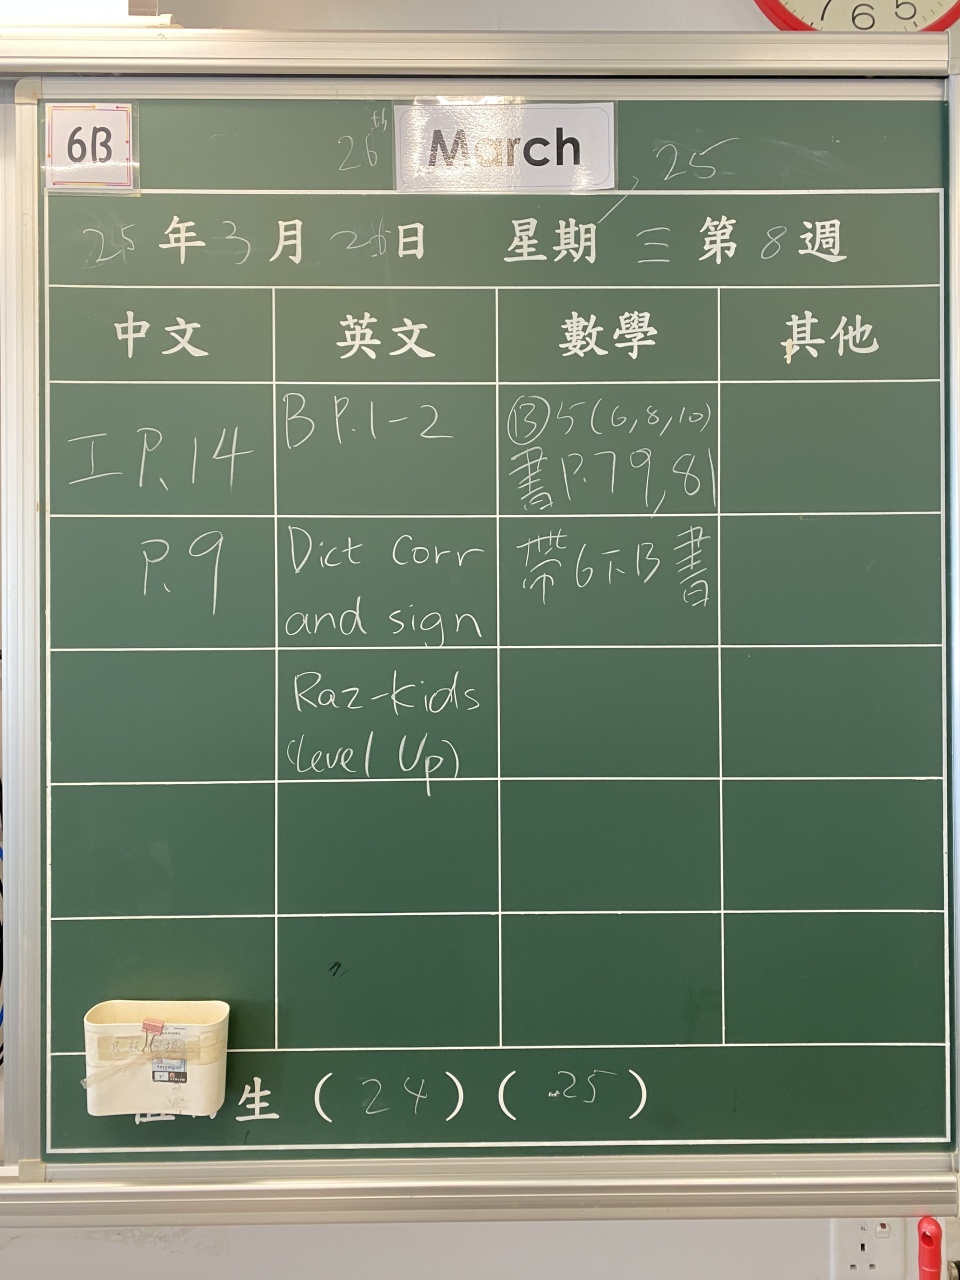 7 6 5
6B
26th March, 25
25年3月26日 星期三 第8週
中文 英文 數學 其他
工 P.14
B P.1-2
⑬5(6,8,10)
書P.79,81
P.9
Dict Corr
and sign
帶6下B書
Raz-kids
(level Up)
生 (24) (25)